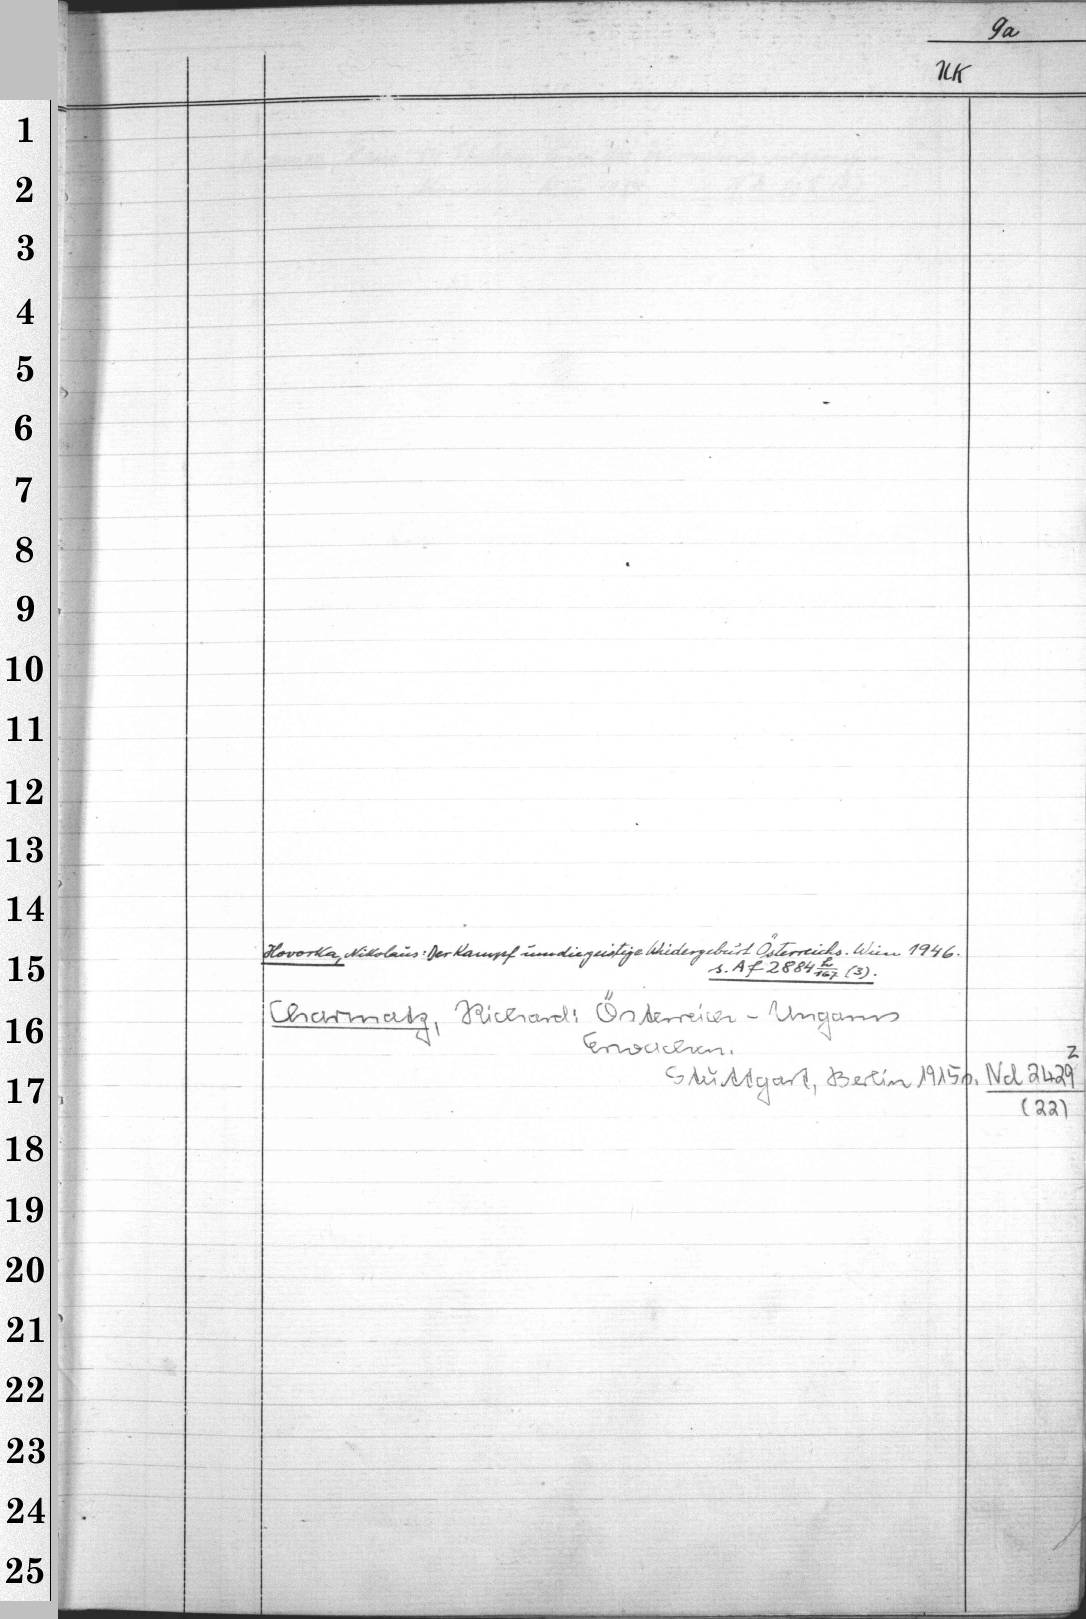 9a
NK
1
2
3
4
5
6
7
8
9
10
11
12
13
14
Hovorka, Nikolaus: Der Kampf um die geistige Wiedergeburt Österreichs. Wien 1946.
15
s. Af 2884 (3).
16
Charmatz, Richard: Österreich - Ungarns
Erwachen.
17
Stuttgart, Berlin 1915. Nd 2429 z
(22)
18
19
20
21
22
23
24
25